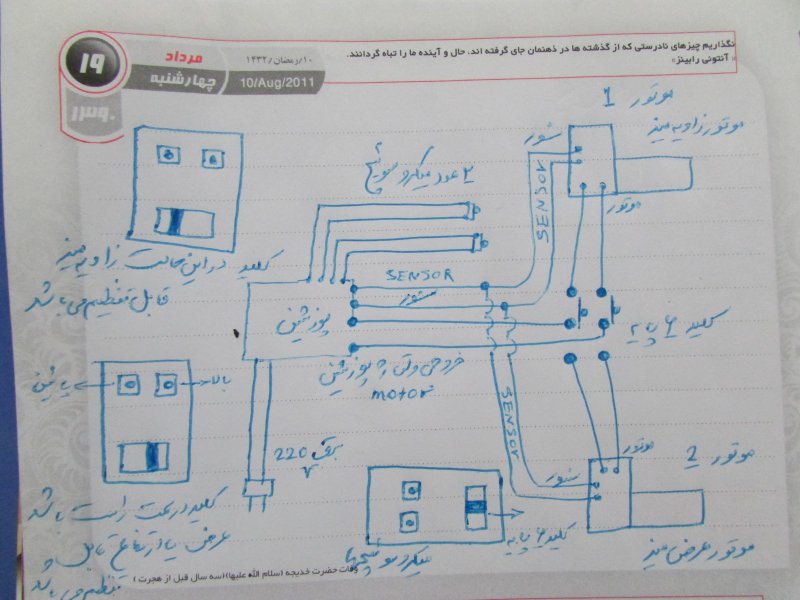 نگذاریم چیزهای نادرستی که از گذشته ها در ذهنمان جای گرفته اند، حال و آینده ما را تباه گردانند.
« آنتونی رابینز»
۱۹
مرداد
چهارشنبه
۱۰/رمضان/۱۴۳۲
10/Aug/2011
۱۳۹۰
موتور 1
موتور زاویه میز
سنسور
SENSOR
موتور
۲ عدد میکرو سوئیچ
کلید در این حالت زاویه میز
قابل تنظیم می باشد
SENSOR
سنسور
پوزشین
کلید ۶ پایه
خروجی ولتاژ پوزشین
motor
پائین
بالا
220 V
برق
SENSOR
سنسور
موتور
موتور 2
موتور عرض میز
کلید در سمت راست باشد
عرض یا ارتفاع قابل
تنظیم می باشد
میکرو سوئیچها
کلید ۶ پایه
وفات حضرت خدیجه (سلام الله علیها)(سه سال قبل از هجرت )